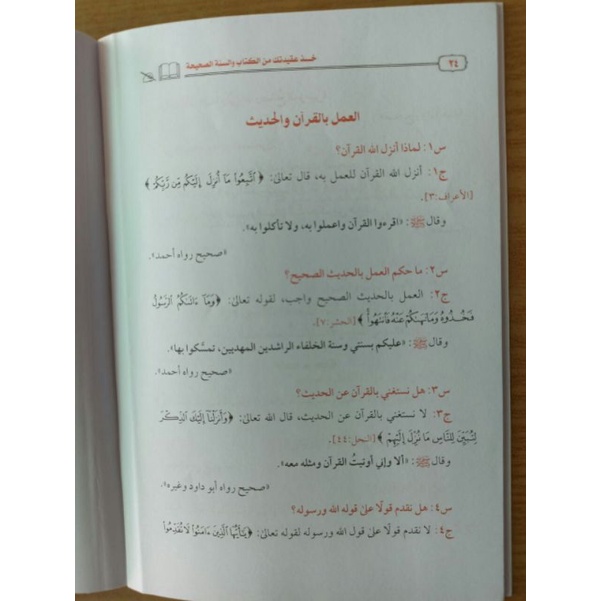 خذ عقيدتك من الكتاب والسنة الصحيحة
٢٤
العمل بالقرآن والحديث
س١: لماذا أنزل الله القرآن؟
ج١: أنزل الله القرآن للعمل به، قال تعالى: ﴿ ٱتَّبِعُوا۟ مَآ أُنزِلَ إِلَيْكُم مِّن رَّبِّكُمْ ﴾
[الأعراف:٣].
وقال ﷺ: «اقرءوا القرآن واعملوا به، ولا تأكلوا به».
«صحيح رواه أحمد».
س٢: ما حكم العمل بالحديث الصحيح؟
ج٢: العمل بالحديث الصحيح واجب، لقوله تعالى: ﴿وَمَآ ءَاتَىٰكُمُ ٱلرَّسُولُ
فَخُذُوهُ وَمَا نَهَىٰكُمْ عَنْهُ فَٱنتَهُوا۟﴾ [الحشر:٧].
وقال ﷺ: «عليكم بسنتي وسنة الخلفاء الراشدين المهديين، تمسَّكوا بها».
«صحيح رواه أحمد».
س٣: هل نستغني بالقرآن عن الحديث؟
ج٣: لا نستغني بالقرآن عن الحديث، قال الله تعالى: ﴿وَأَنزَلْنَآ إِلَيْكَ ٱلذِّكْرَ
لِتُبَيِّنَ لِلنَّاسِ مَا نُزِّلَ إِلَيْهِمْ ﴾ [النحل:٤٤].
وقال ﷺ: «ألا وإني أوتيتُ القرآن ومثله معه».
«صحيح رواه أبو داود وغيره».
س٤: هل نقدم قولًا على قوله الله ورسوله؟
ج٤: لا نقدم قولًا على قول الله ورسوله لقوله تعالى: ﴿يَٰٓأَيُّهَا ٱلَّذِينَ ءَامَنُوا۟ لَا تُقَدِّمُوا۟